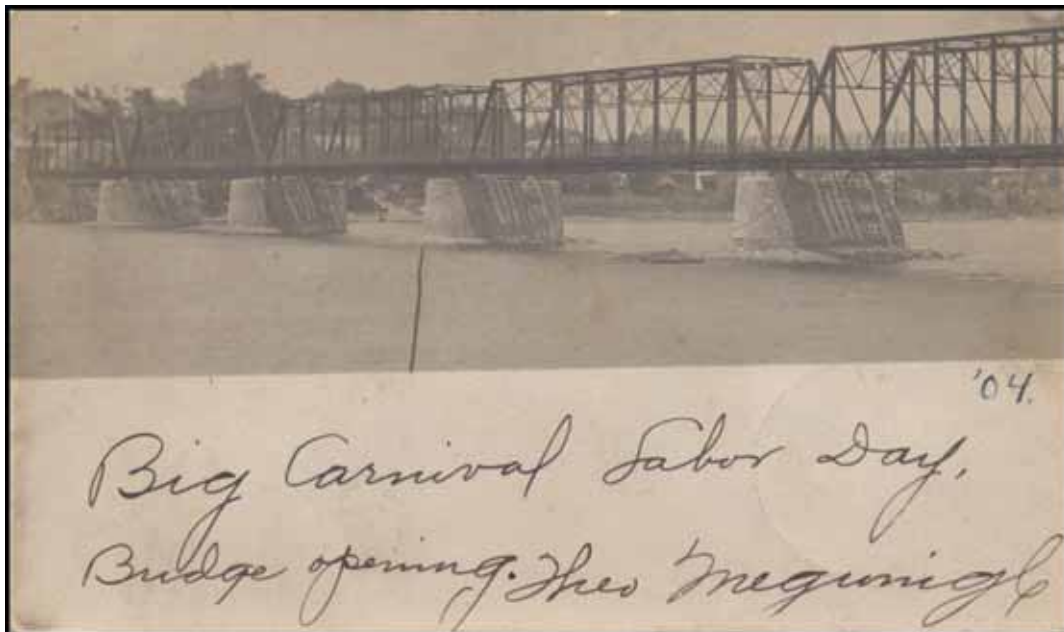 '04.
Big Carnival Labor Day.
Bridge opening. Theo Megunigle